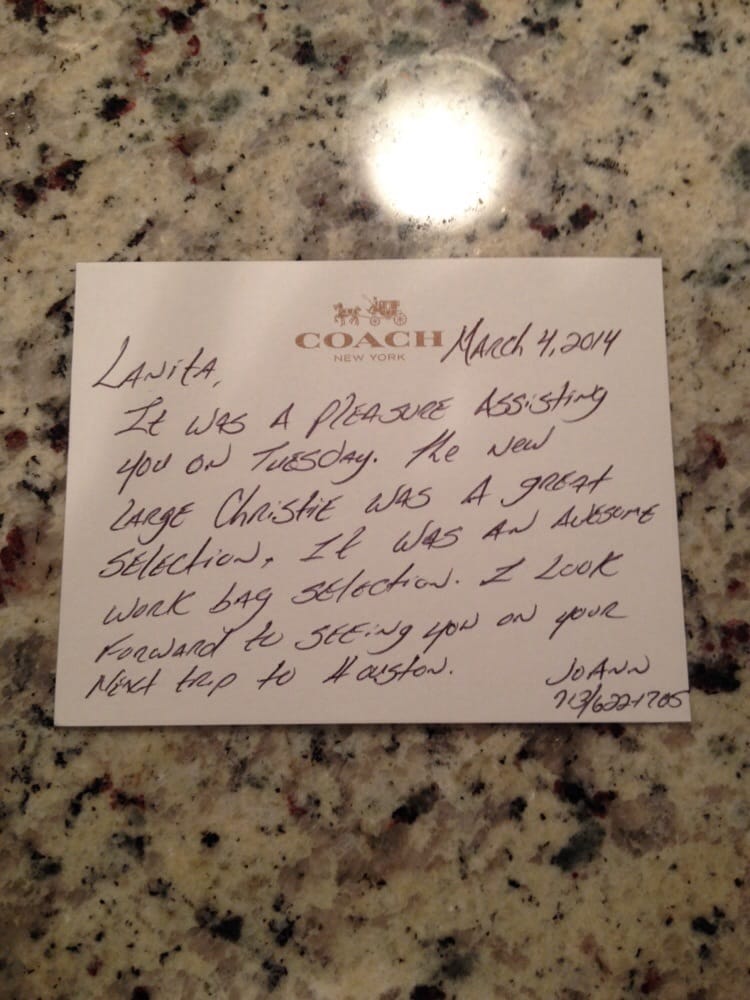 COACH
NEW YORK
March 4, 2014
Lanita,
It was a pleasure assisting
you on Tuesday. The new
large Christie was a great
selection, It was an awesome
work bag selection. I look
forward to seeing you on your
next trip to Houston.
JoAnn
713/622-1705